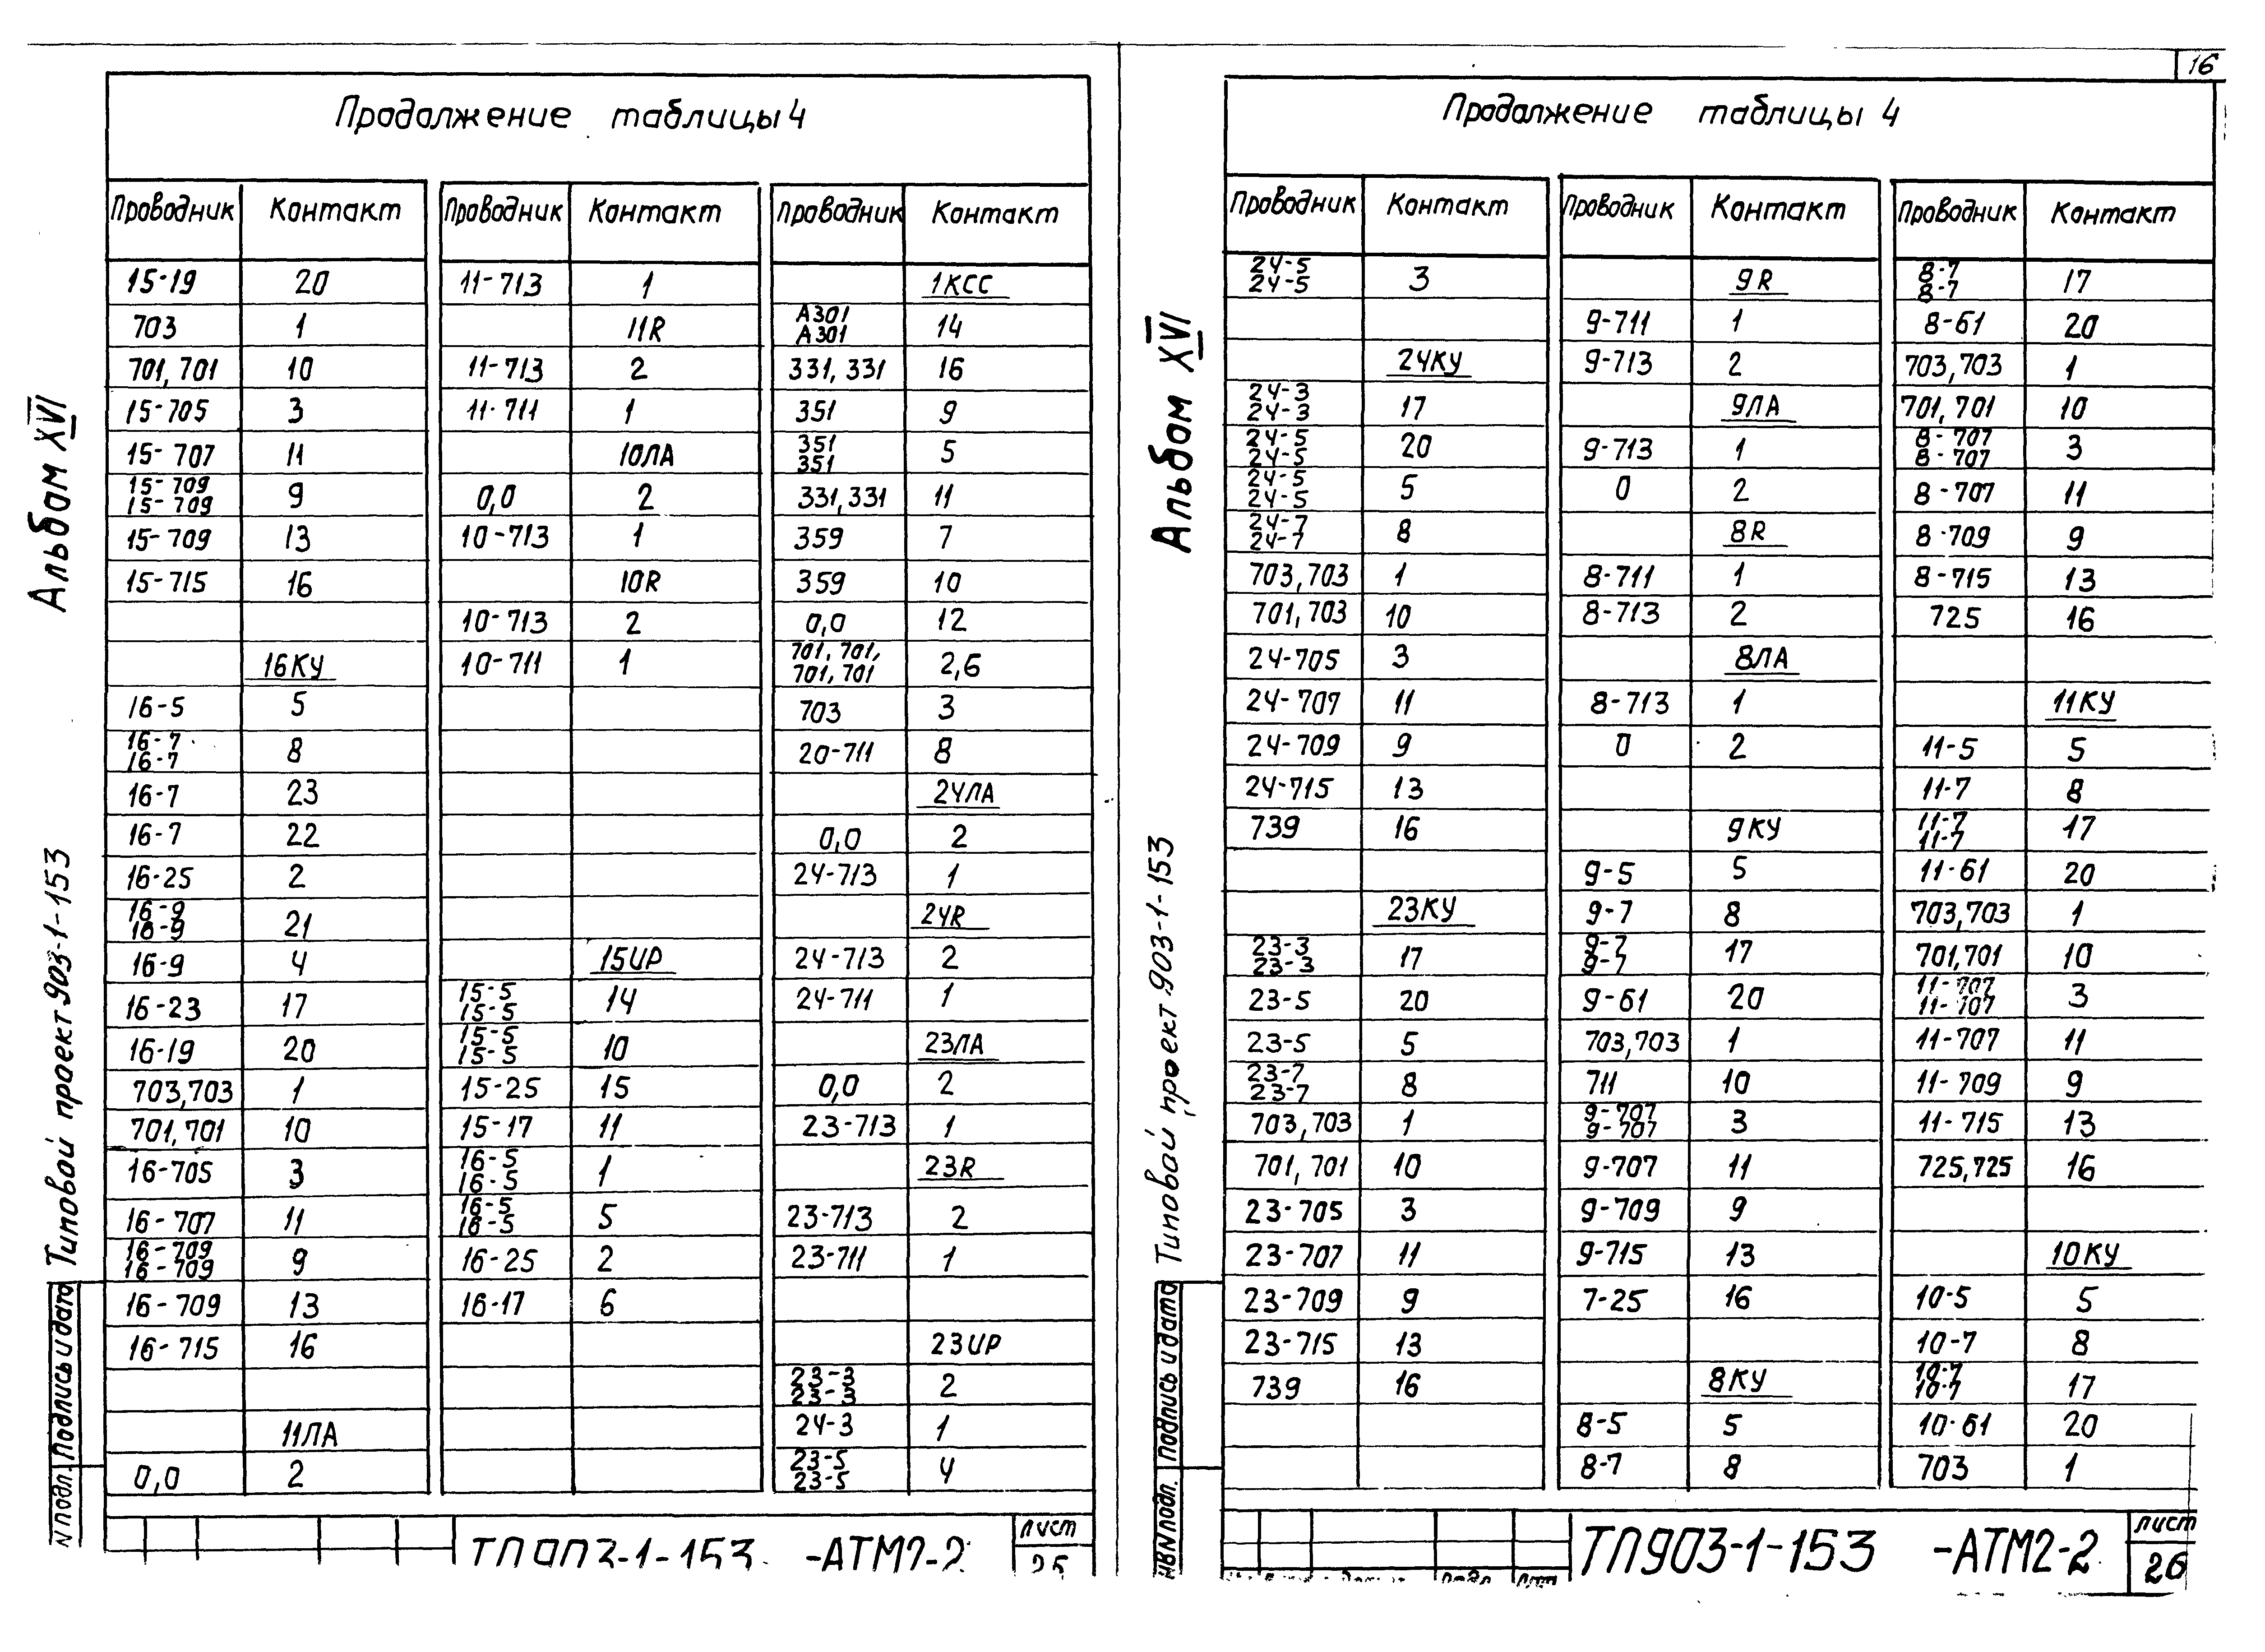 16
Продолжение таблицы 4
Проводник Контакт Проводник Контакт Проводник Контакт
15-19 20 11-713 1 1КСС
703 1 11R А301 А301 14
701, 701 10 11-713 2 331, 331 16
15-705 3 11-711 1 351 9
15-707 11 10ЛА 351 351 5
15-709 15-709 9 0,0 2 331,331 11
15-709 13 10-713 1 359 7
15-715 16 10R 359 10
10-713 2 0,0 12
16КУ 10-711 1 701, 701, 701, 701 2,6
16-5 5 703 3
16-7 16-7 8 20-711 8
16-7 23 24ЛА
16-7 22 0,0 2
16-25 2 24-713 1
16-9 16-9 21 24R
16-9 4 15UP 24-713 2
16-23 17 15-5 15-5 14 24-711 1
16-19 20 15-5 15-5 10 23ЛА
703,703 1 15-25 15 0,0 2
701,701 10 15-17 11 23-713 1
16-705 3 16-5 16-5 1 23R
16-707 11 16-5 16-5 5 23-713 2
16-709 16-709 9 16-25 2 23-711 1
16-709 13 16-17 6
16-715 16 23UP
23-3 23-3 2
11ЛА 24-3 1
0,0 2 23-5 23-5 4
Альбом XVI
Типовой проект 903-1-153
N подл. Подпись и дата
-АТМ2-2
Лист
Продолжение таблицы 4
Проводник Контакт Проводник Контакт Проводник Контакт
24-5 24-5 3 9R 8-7 8-7 17
9-711 1 8-61 20
24КУ 9-713 2 703,703 1
24-3 24-3 17 9ЛА 701, 701 10
24-5 24-5 20 9-713 1 8-707 8-707 3
24-5 24-5 5 0 2 8-707 11
24-7 24-7 8 8R 8-709 9
703,703 1 8-711 1 8-715 13
701,703 10 8-713 2 725 16
24-705 3 8ЛА
24-707 11 8-713 1 11КУ
24-709 9 0 2 11-5 5
24-715 13 11-7 8
739 16 9КУ 11-7 11-7 17
9-5 5 11-61 20
23КУ 9-7 8 703,703 1
23-3 23-3 17 9-7 9-7 17 701,701 10
23-5 20 9-61 20 11-707 11-707 3
23-5 5 703,703 1 11-707 11
23-7 23-7 8 711 10 11-709 9
703,703 1 9-707 9-707 3 11-715 13
701, 701 10 9-707 11 725,725 16
23-705 3 9-709 9
23-707 11 9-715 13 10КУ
23-709 9 7-25 16 10-5 5
23-715 13 10-7 8
739 16 8КУ 10-7 10-7 17
8-5 5 10-61 20
8-7 8 703 1
Альбом XVI
Типовой проект 903-1-153
ИНВ N подл. Подпись и дата
ТП903-1-153 -АТМ2-2
Лист
26